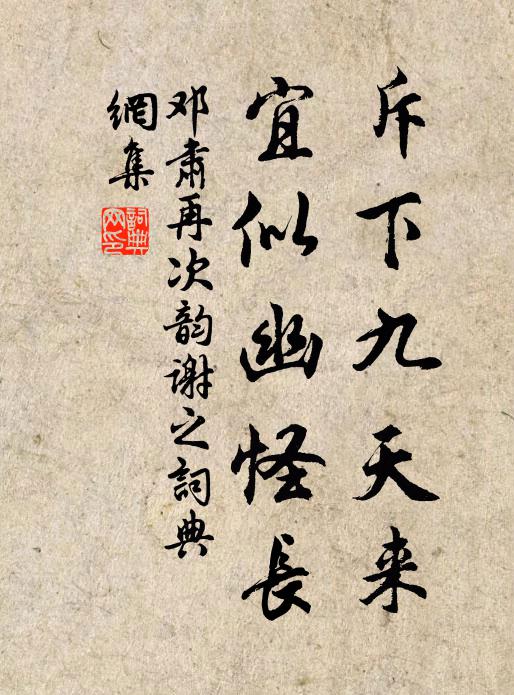 斥下九天来
宜似幽怪長
邓肃再次韵谢之詞典
網集
詞典
网印